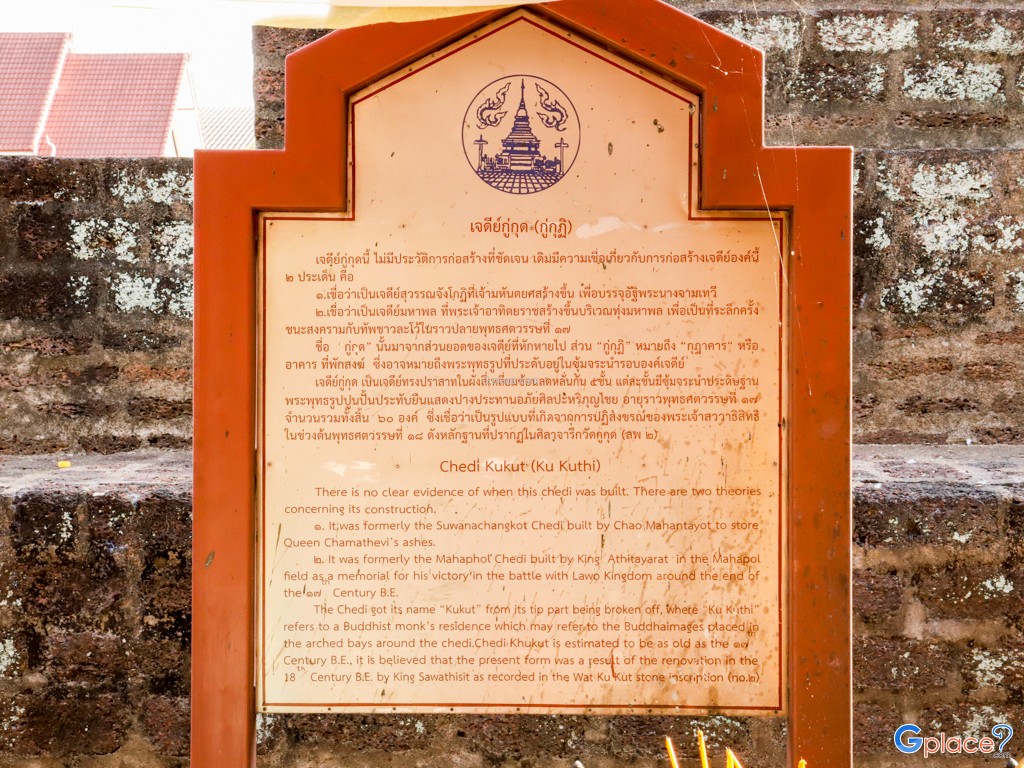 เจดีย์กู่กุด (กู่กุฏิ)
เจดีย์กู่กุดนี้ ไม่มีประวัติการก่อสร้างที่ชัดเจน เดิมมีความเชื่อเกี่ยวกับการก่อสร้างเจดีย์องค์นี้
๒ ประเด็น คือ
๑.เชื่อว่าเป็นเจดีย์สุวรรณจังโกฏิที่เจ้ามหันตยศสร้างขึ้น เพื่อบรรจุอัฐิพระนางจามเทวี
๒.เชื่อว่าเป็นเจดีย์มหาพล ที่พระเจ้าอาทิตยราชสร้างขึ้นบริเวณทุ่งมหาพล เพื่อเป็นที่ระลึกครั้ง
ชนะสงครามกับทัพชาวละโว้ในราวปลายพุทธศตวรรษที่ ๑๗
ชื่อ "กู่กุด" นั้นมาจากส่วนยอดของเจดีย์ที่หักหายไป ส่วน "กู่กุฏิ" หมายถึง "กุฎาคาร" หรือ
อาคาร ที่พักสงฆ์ ซึ่งอาจหมายถึงพระพุทธรูปที่ประดับอยู่ในซุ้มจระนำรอบองค์เจดีย์
เจดีย์กู่กุด เป็นเจดีย์ทรงปราสาทในผังสี่เหลี่ยมซ้อนลดหลั่นกัน ๕ชั้น แต่ละชั้นมีซุ้มจระนำประดิษฐาน
พระพุทธรูปปูนปั้นประทับยืนแสดงปางประทานอภัยศิลปะหริภุญไชย อายุราวพุทธศตวรรษที่ ๑๗
จำนวนรวมทั้งสิ้น ๖๐ องค์ ซึ่งเชื่อว่าเป็นรูปแบบที่เกิดจากการปฏิสังขรณ์ของพระเจ้าสววาธิสิทธิ
ในช่วงต้นพุทธศตวรรษที่ ๑๘ ดังหลักฐานที่ปรากฏในศิลาจารึกวัดกู่กุด (ลพ ๒)
Chedi Kukut (Ku Kuthi)
There is no clear evidence of when this chedi was built. There are two theories
concerning its construction.
๑. It was formerly the Suwanachangkot Chedi built by Chao Mahantayot to store
Queen Chamathevi's ashes.
๒. It was formerly the Mahaphol Chedi built by King Athitayarat in the Mahapol
field as a memorial for his victory in the battle with Lawo Kingdom around the end of
the ๑๗th Century B.E.
The Chedi got its name "Kukut" from its tip part being broken off, where "Ku Kuthi"
refers to a Buddhist monk's residence which may refer to the Buddhaimages placed in
the arched bays around the chedi.Chedi Khukut is estimated to be as old as the ๑๗th
Century B.E., it is believed that the present form was a result of the renovation in the
18th Century B.E. by King Sawathisit as recorded in the Wat Ku Kut stone inscription (no.๒)
Gplace
.com